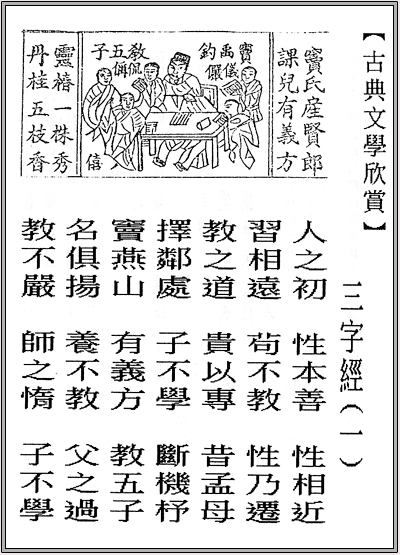 【古典文學欣賞】
三字經(一)
竇氏産賢郎
課兒有義方
竇
禹儀
鈞儼
教侃
五偁
子
僖
靈椿一株秀
丹桂五枝香
人之初 性本善 性相近
習相遠 苟不教 性乃遷
教之道 貴以專 昔孟母
擇鄰處 子不學 斷機杼
竇燕山 有義方 教五子
名俱揚 養不教 父之過
教不嚴 師之惰 子不學